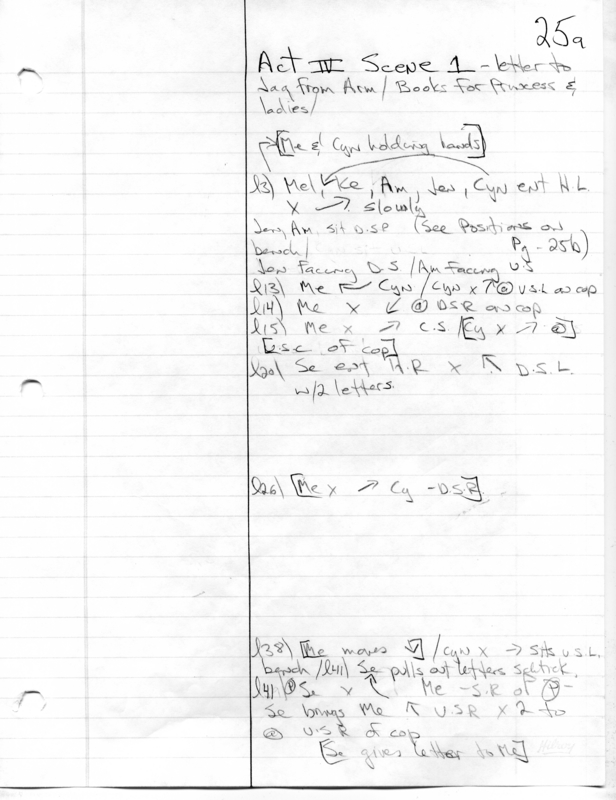 25a
Act IV Scene 1 - letter to
Jaq from Arm / Books for Princess &
ladies /
[Me & Cyn holding hands]
l3) Mel, Ke, Am, Jen, Cyn ent H.L.
X → slowly
Jen, Am sit D.S.P (See Positions on
bench / Pg - 25b)
Jen Facing D.S / Am Facing U.S
l13) Me ← Cyn / Cyn x ↑ @ U.S.L on cop
l14) Me X ↙ @ DSR on cop
l15) Me x → C.S. / [Cy x → @]
[D.S.C. of cop]
l20) Se ent H.R X ↖ D.S.L.
w/2 letters.
l26) [Me x → Cy - D.S.R]
l38) [Me moves ↙] / Cyn X → sits U.S.L.
bench / l41) Se pulls out letters schtick.
l41) ① Se x ↖ Me - S.R of
Se brings Me ↖ U.S.R X 2 to
@ U.S.R of cop
[Se gives letter to Me]